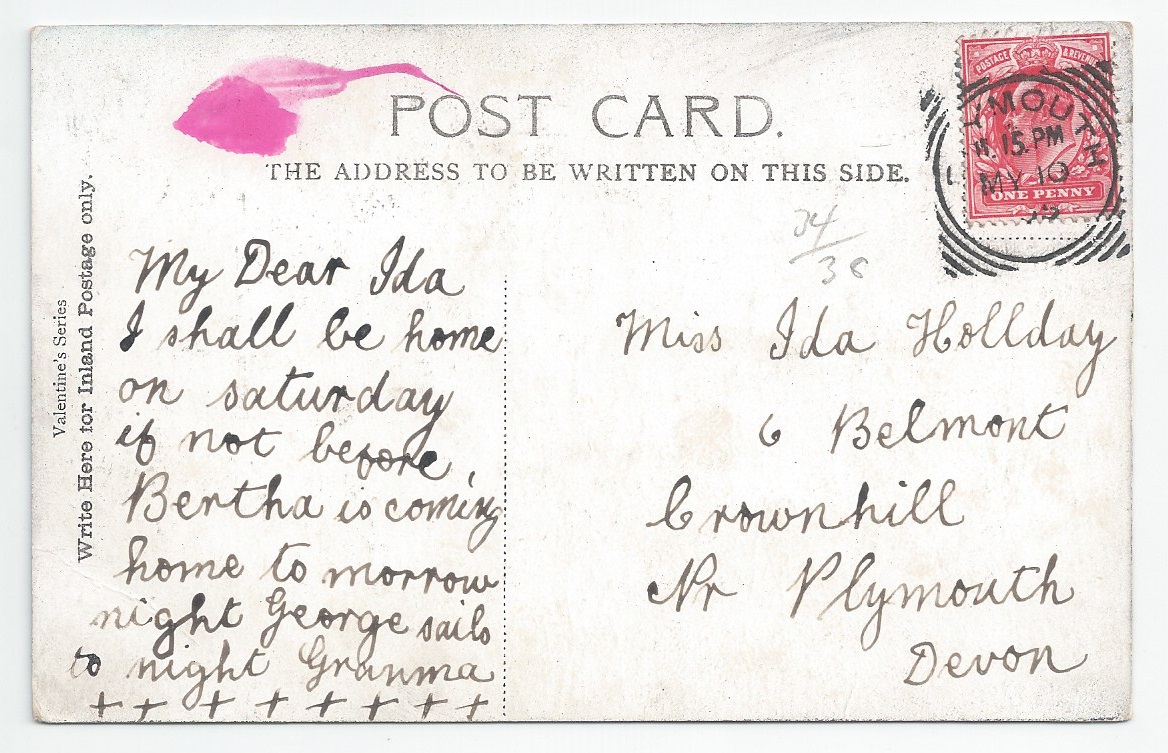 POST CARD.
THE ADDRESS TO BE WRITTEN ON THIS SIDE.
POSTAGE & REVENUE
YMOUTH
15. PM
MY 10
ONE PENNY
Valentine's Series
Write Here for Inland Postage only.
My Dear Ida
I shall be home
on saturday
if not before,
Bertha is coming
home to morrow
night George sails
to night Granma
+ + + + + + + +
34
38
Miss Ida Hollday
6 Belmont
Crownhill
Nr Plymouth
Devon